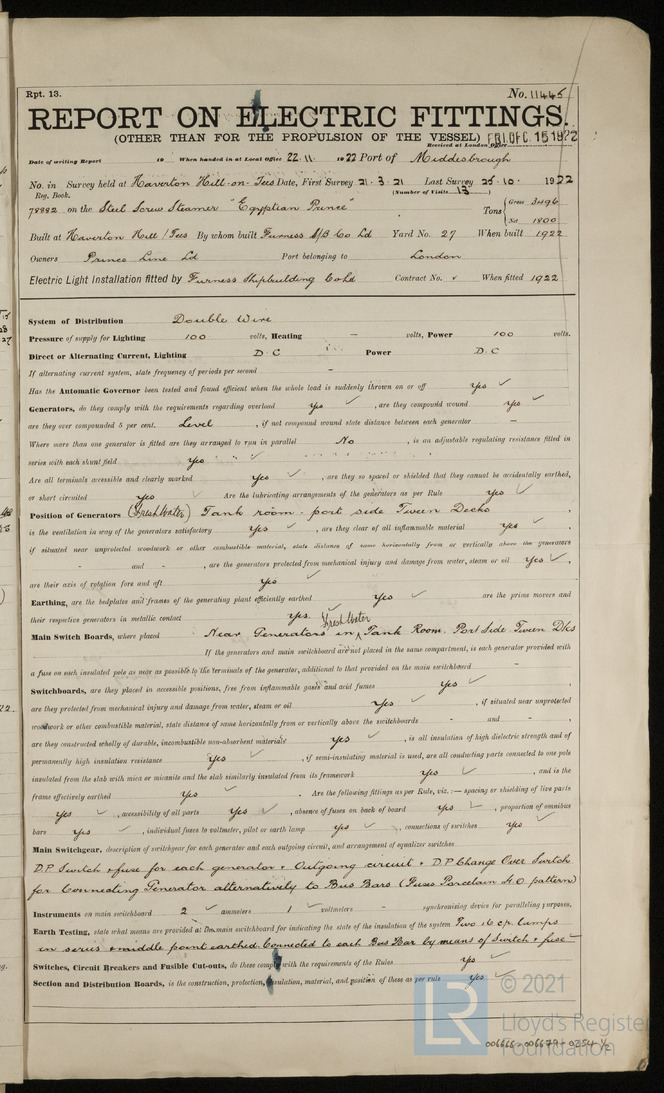 Rpt. 13. No. 11445
REPORT ON ELECTRIC FITTINGS.
(OTHER THAN FOR THE PROPULSION OF THE VESSEL) FRI. DEC. 15 1922
Received at London Office
Date of writing Report 19 When handed in at Local Office 22.11. 1922 Port of Middlesbrough
No. in Survey held at Haverton Hill-on-Tees Date, First Survey 21.3.21 Last Survey 25.10. 1922
Reg. Book. (Number of Visits 13)
78892 on the Steel Screw Steamer "Egyptian Prince" Tons { Gross 3496
Net 1800
Built at Haverton Hill / Tees By whom built Furness S/B Co Ld Yard No. 27 When built 1922
Owners Prince Line Ld Port belonging to London
Electric Light Installation fitted by Furness Shipbuilding Co Ld Contract No. When fitted 1922
System of Distribution Double Wire
Pressure of supply for Lighting 100 volts, Heating — volts, Power 100 volts.
Direct or Alternating Current, Lighting D.C Power D.C
If alternating current system, state frequency of periods per second —
Has the Automatic Governor been tested and found efficient when the whole load is suddenly thrown on or off yes ✓
Generators, do they comply with the requirements regarding overload yes ✓, are they compound wound yes ✓
are they over compounded 5 per cent. Level, if not compound wound state distance between each generator —
Where more than one generator is fitted are they arranged to run in parallel No, is an adjustable regulating resistance fitted in
series with each shunt field yes ✓
Are all terminals accessible and clearly marked yes ✓, are they so spaced or shielded that they cannot be accidentally earthed,
or short circuited yes ✓ Are the lubricating arrangements of the generators as per Rule yes ✓
Position of Generators (Fresh Water) Tank room - port side Tween Decks,
is the ventilation in way of the generators satisfactory yes ✓, are they clear of all inflammable material yes ✓,
if situated near unprotected woodwork or other combustible material, state distance of same horizontally from or vertically above the generators
- and -, are the generators protected from mechanical injury and damage from water, steam or oil yes ✓,
are their axis of rotation fore and aft yes ✓
Earthing, are the bedplates and frames of the generating plant efficiently earthed yes ✓ are the prime movers and
their respective generators in metallic contact yes. ✓
Main Switch Boards, where placed Near Generators in Fresh Water Tank Room. Port Side Tween Dks
If the generators and main switchboard are not placed in the same compartment, is each generator provided with
a fuse on each insulated pole as near as possible to the terminals of the generator, additional to that provided on the main switchboard -
Switchboards, are they placed in accessible positions, free from inflammable gases and acid fumes yes ✓,
are they protected from mechanical injury and damage from water, steam or oil yes ✓, if situated near unprotected
woodwork or other combustible material, state distance of same horizontally from or vertically above the switchboards - and -,
are they constructed wholly of durable, incombustible non-absorbent materials yes ✓, is all insulation of high dielectric strength and of
permanently high insulation resistance yes ✓, if semi-insulating material is used, are all conducting parts connected to one pole
insulated from the slab with mica or micanite and the slab similarly insulated from its framework yes ✓, and is the
frame effectively earthed yes ✓. Are the following fittings as per Rule, viz.:— spacing or shielding of live parts
yes ✓, accessibility of all parts yes ✓, absence of fuses on back of board yes ✓, proportion of omnibus
bars yes ✓, individual fuses to voltmeter, pilot or earth lamp yes ✓, connections of switches yes ✓
Main Switchgear, description of switchgear for each generator and each outgoing circuit, and arrangement of equalizer switches
D.P. Switch + fuse for each generator + Outgoing circuit + D.P. Change Over Switch
for Connecting Generator alternatively to Bus Bars (Fuses Porcelain H.O pattern)
Instruments on main switchboard 2 ✓ ammeters 1 ✓ voltmeters - synchronizing device for paralleling purposes.
Earth Testing, state what means are provided at the main switchboard for indicating the state of the insulation of the system Two 16 c.p. lamps
in series + middle point earthed. Connected to each Bus Bar by means of Switch + fuse
Switches, Circuit Breakers and Fusible Cut-outs, do these comply with the requirements of the Rules yes ✓
Section and Distribution Boards, is the construction, protection, insulation, material, and position of these as per rule yes ✓
© 2021
LR
Lloyd's Register
Foundation
006666-006679-0254 1/2